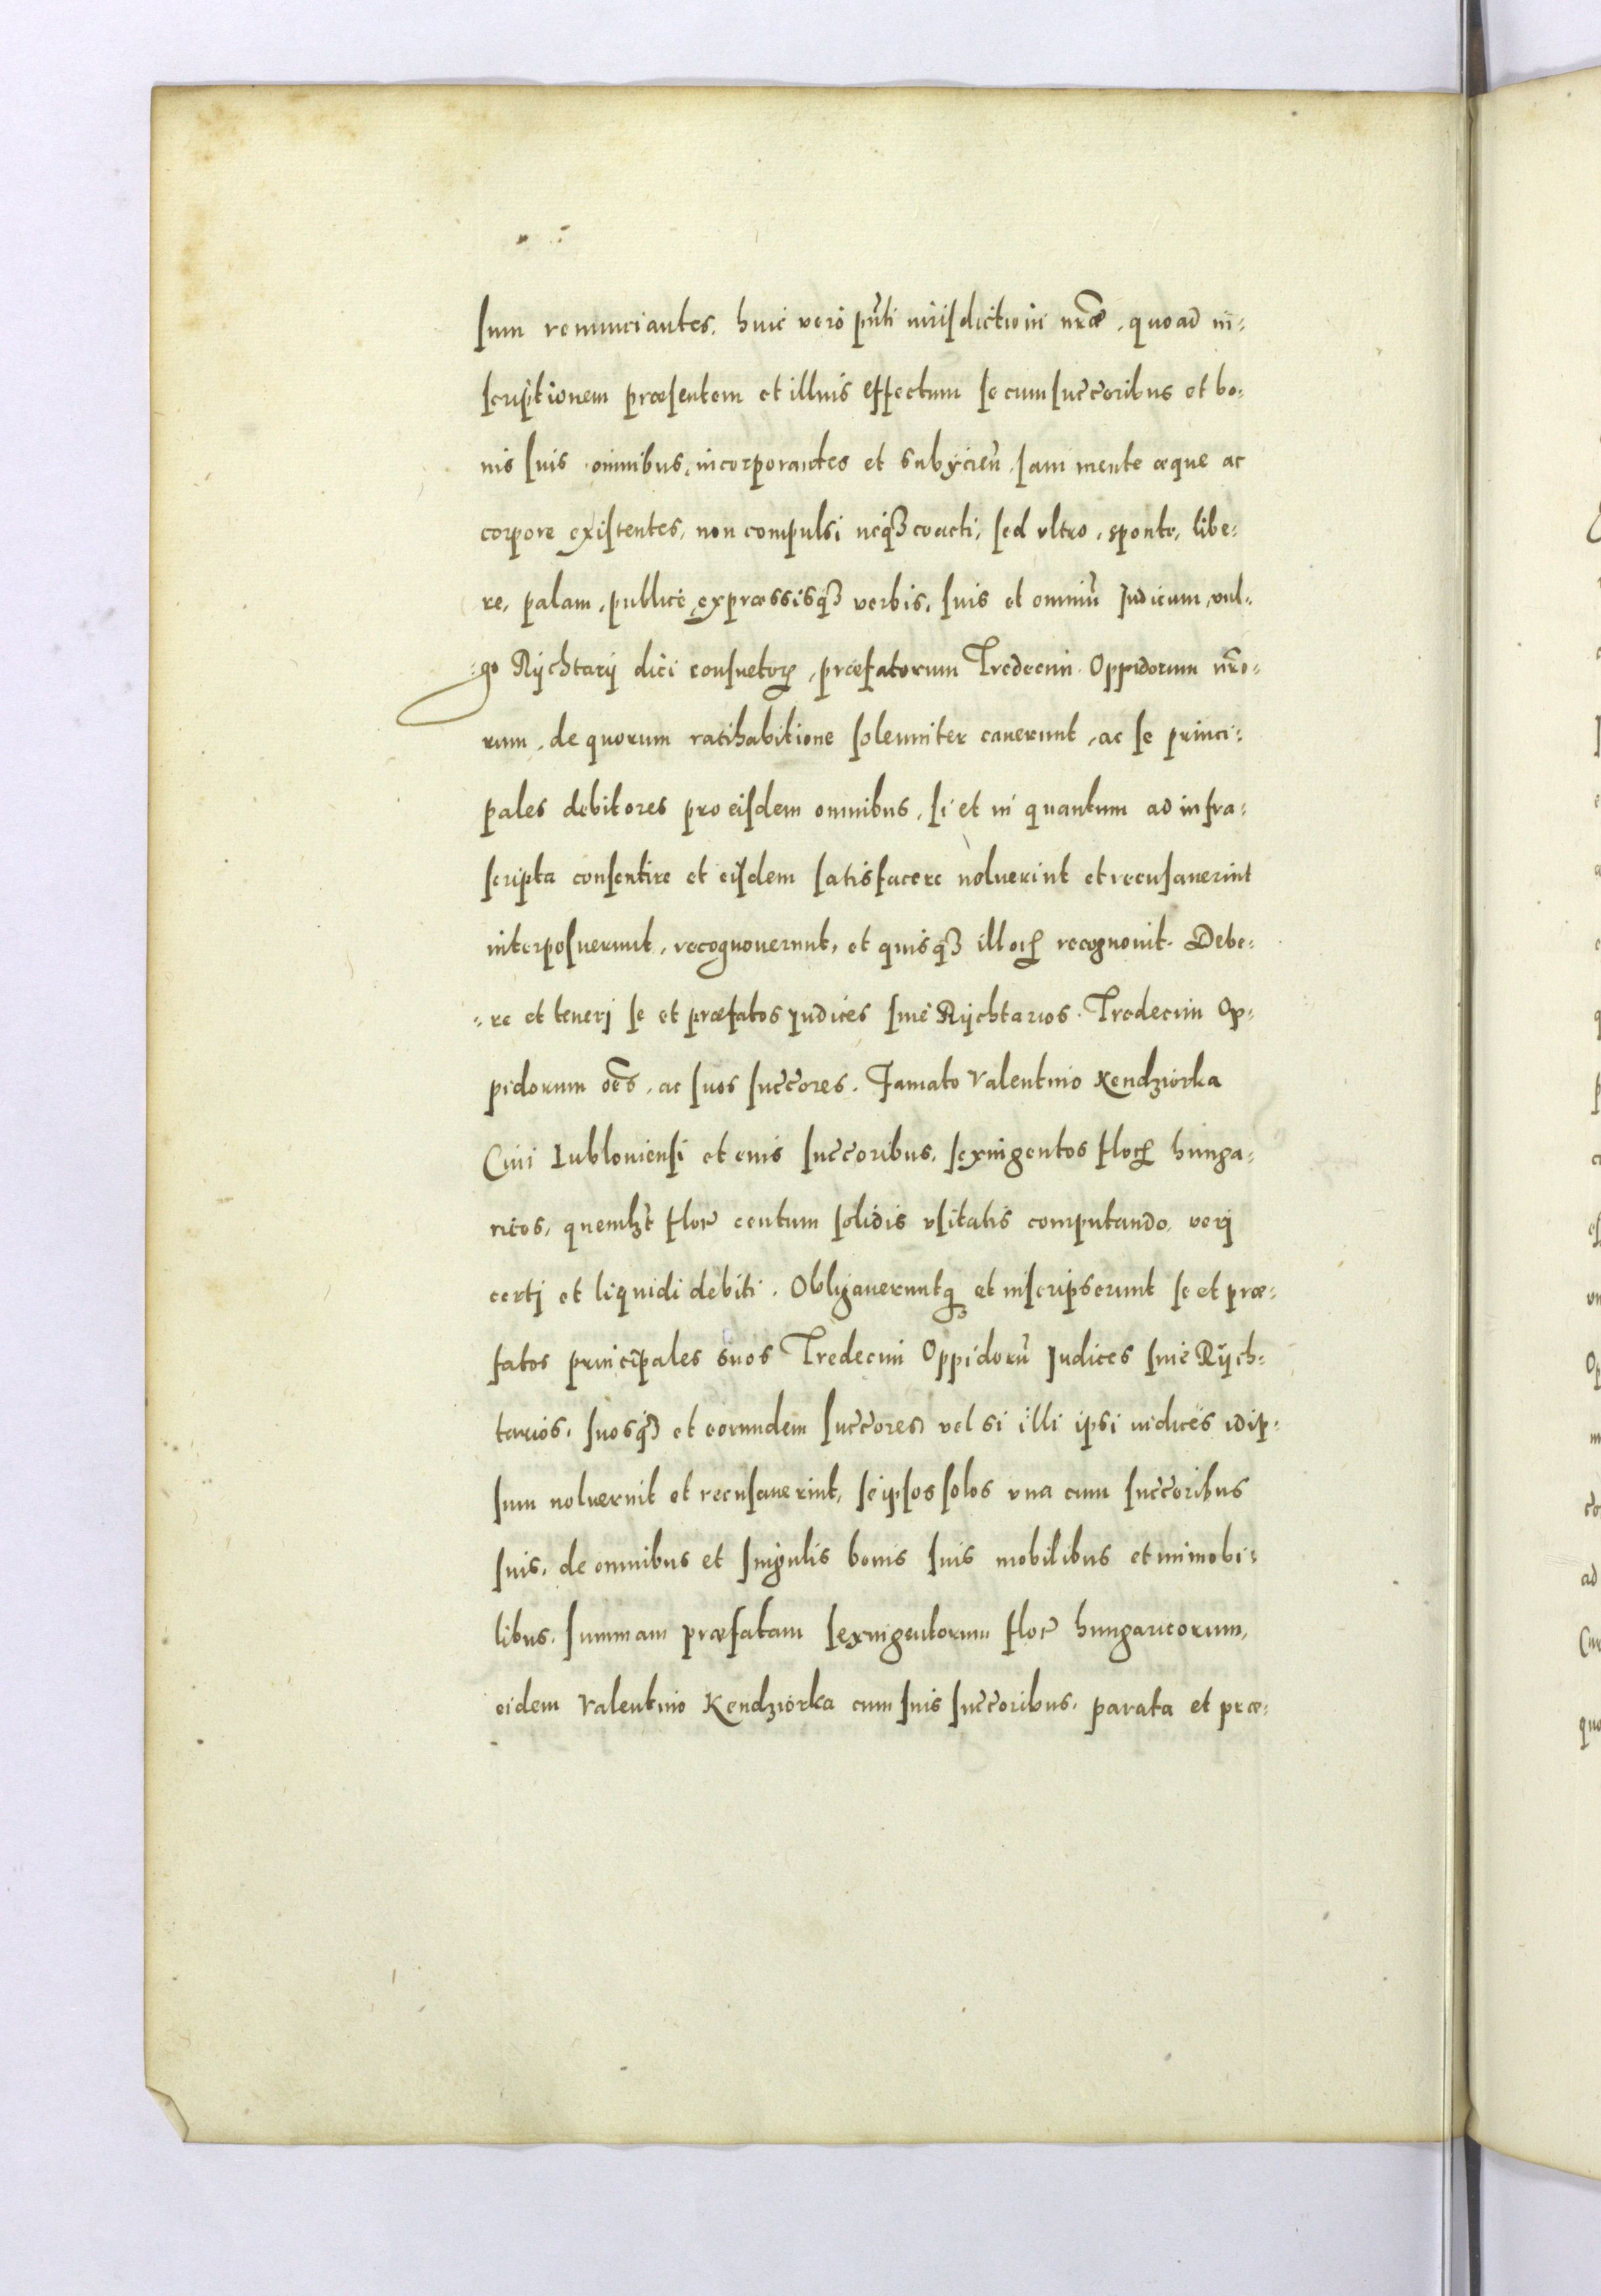 sum renunciantes, huic vero pñti iurisdictioni nr̃æ, quoad in-
scriptionem præsentem et illius effectum se cum succ̃oribus et bo-
nis suis omnibus, incorporantes et subÿcien̄, sani mente æque ac
corpore existentes, non compulsi neqꝫ coacti, sed ultro, sponte, libe-
re, palam, publice expræssisqꝫ verbis, suis et omniū Judicum, vul-
go Rÿchtarij dici consuetorꝝ, præfatorum Tredecim Oppidorum nr̃o-
rum, de quorum ratihabitione solenniter cauerunt, ac se princi-
pales debitores pro eisdem omnibus, si et in quantum ad infra-
scripta consentire et eisdem satisfacere noluerint et recusauerint
interposuerunt, recognouerunt, et quisqꝫ illorꝝ recognouit. Debe-
re et tenerj se et præfatos judices siue Rÿchtarios Tredecim Op-
pidorum oẽs, ac suos succ̃ores. Famato Valentino Kendziorka
Ciui Lubloniensi et eius succ̃oribus, sexingentos florꝝ hunga-
ricos, quemlꝫt flor̃ centum solidis usitatis computando, verj
certj et liquidi debiti. Obligaueruntqꝫ et inscripserunt se et præ-
fatos principales suos Tredecim Oppidorū Judices siue Rÿch-
tarios, suosqꝫ et eorundem succ̃ores, vel si illi ipsi iudices idip-
sum noluerint et recusauerint, seipsos solos una cum succ̃oribus
suis, de omnibus et singulis bonis suis mobilibus et immobi-
libus, summam præfatam sexingentorum flor̃ hungaricorum,
eidem Valentino Kendziorka cum suis succ̃oribus, parata et præ-